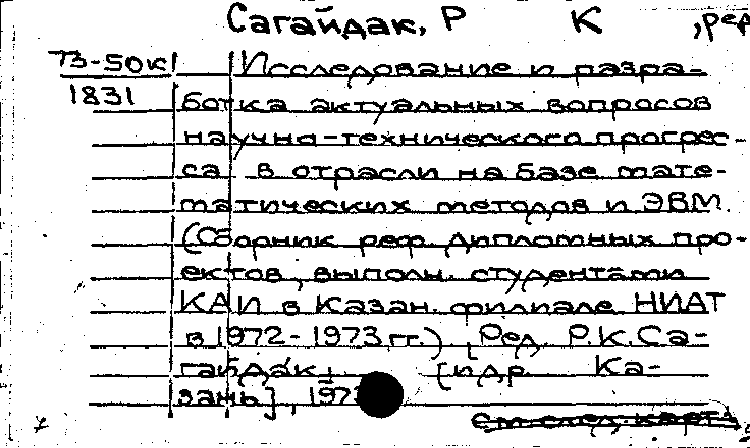 Сагайдак, Р К , ред
ТЗ-50К Исследование и разра-
1831 ботка актуальных вопросов
научно-технического прогрес-
са в отрасли на базе мате-
матических методов и ЭВМ.
(Сборник реф. дипломных про-
ектов, выполн. студентами
КАИ в Казан. филиале НИАТ
в 1972-1973 гг.) [Ред. Р.К. Са-
гайдак, [и др. Ка-
зань], 197
См. след. карт.